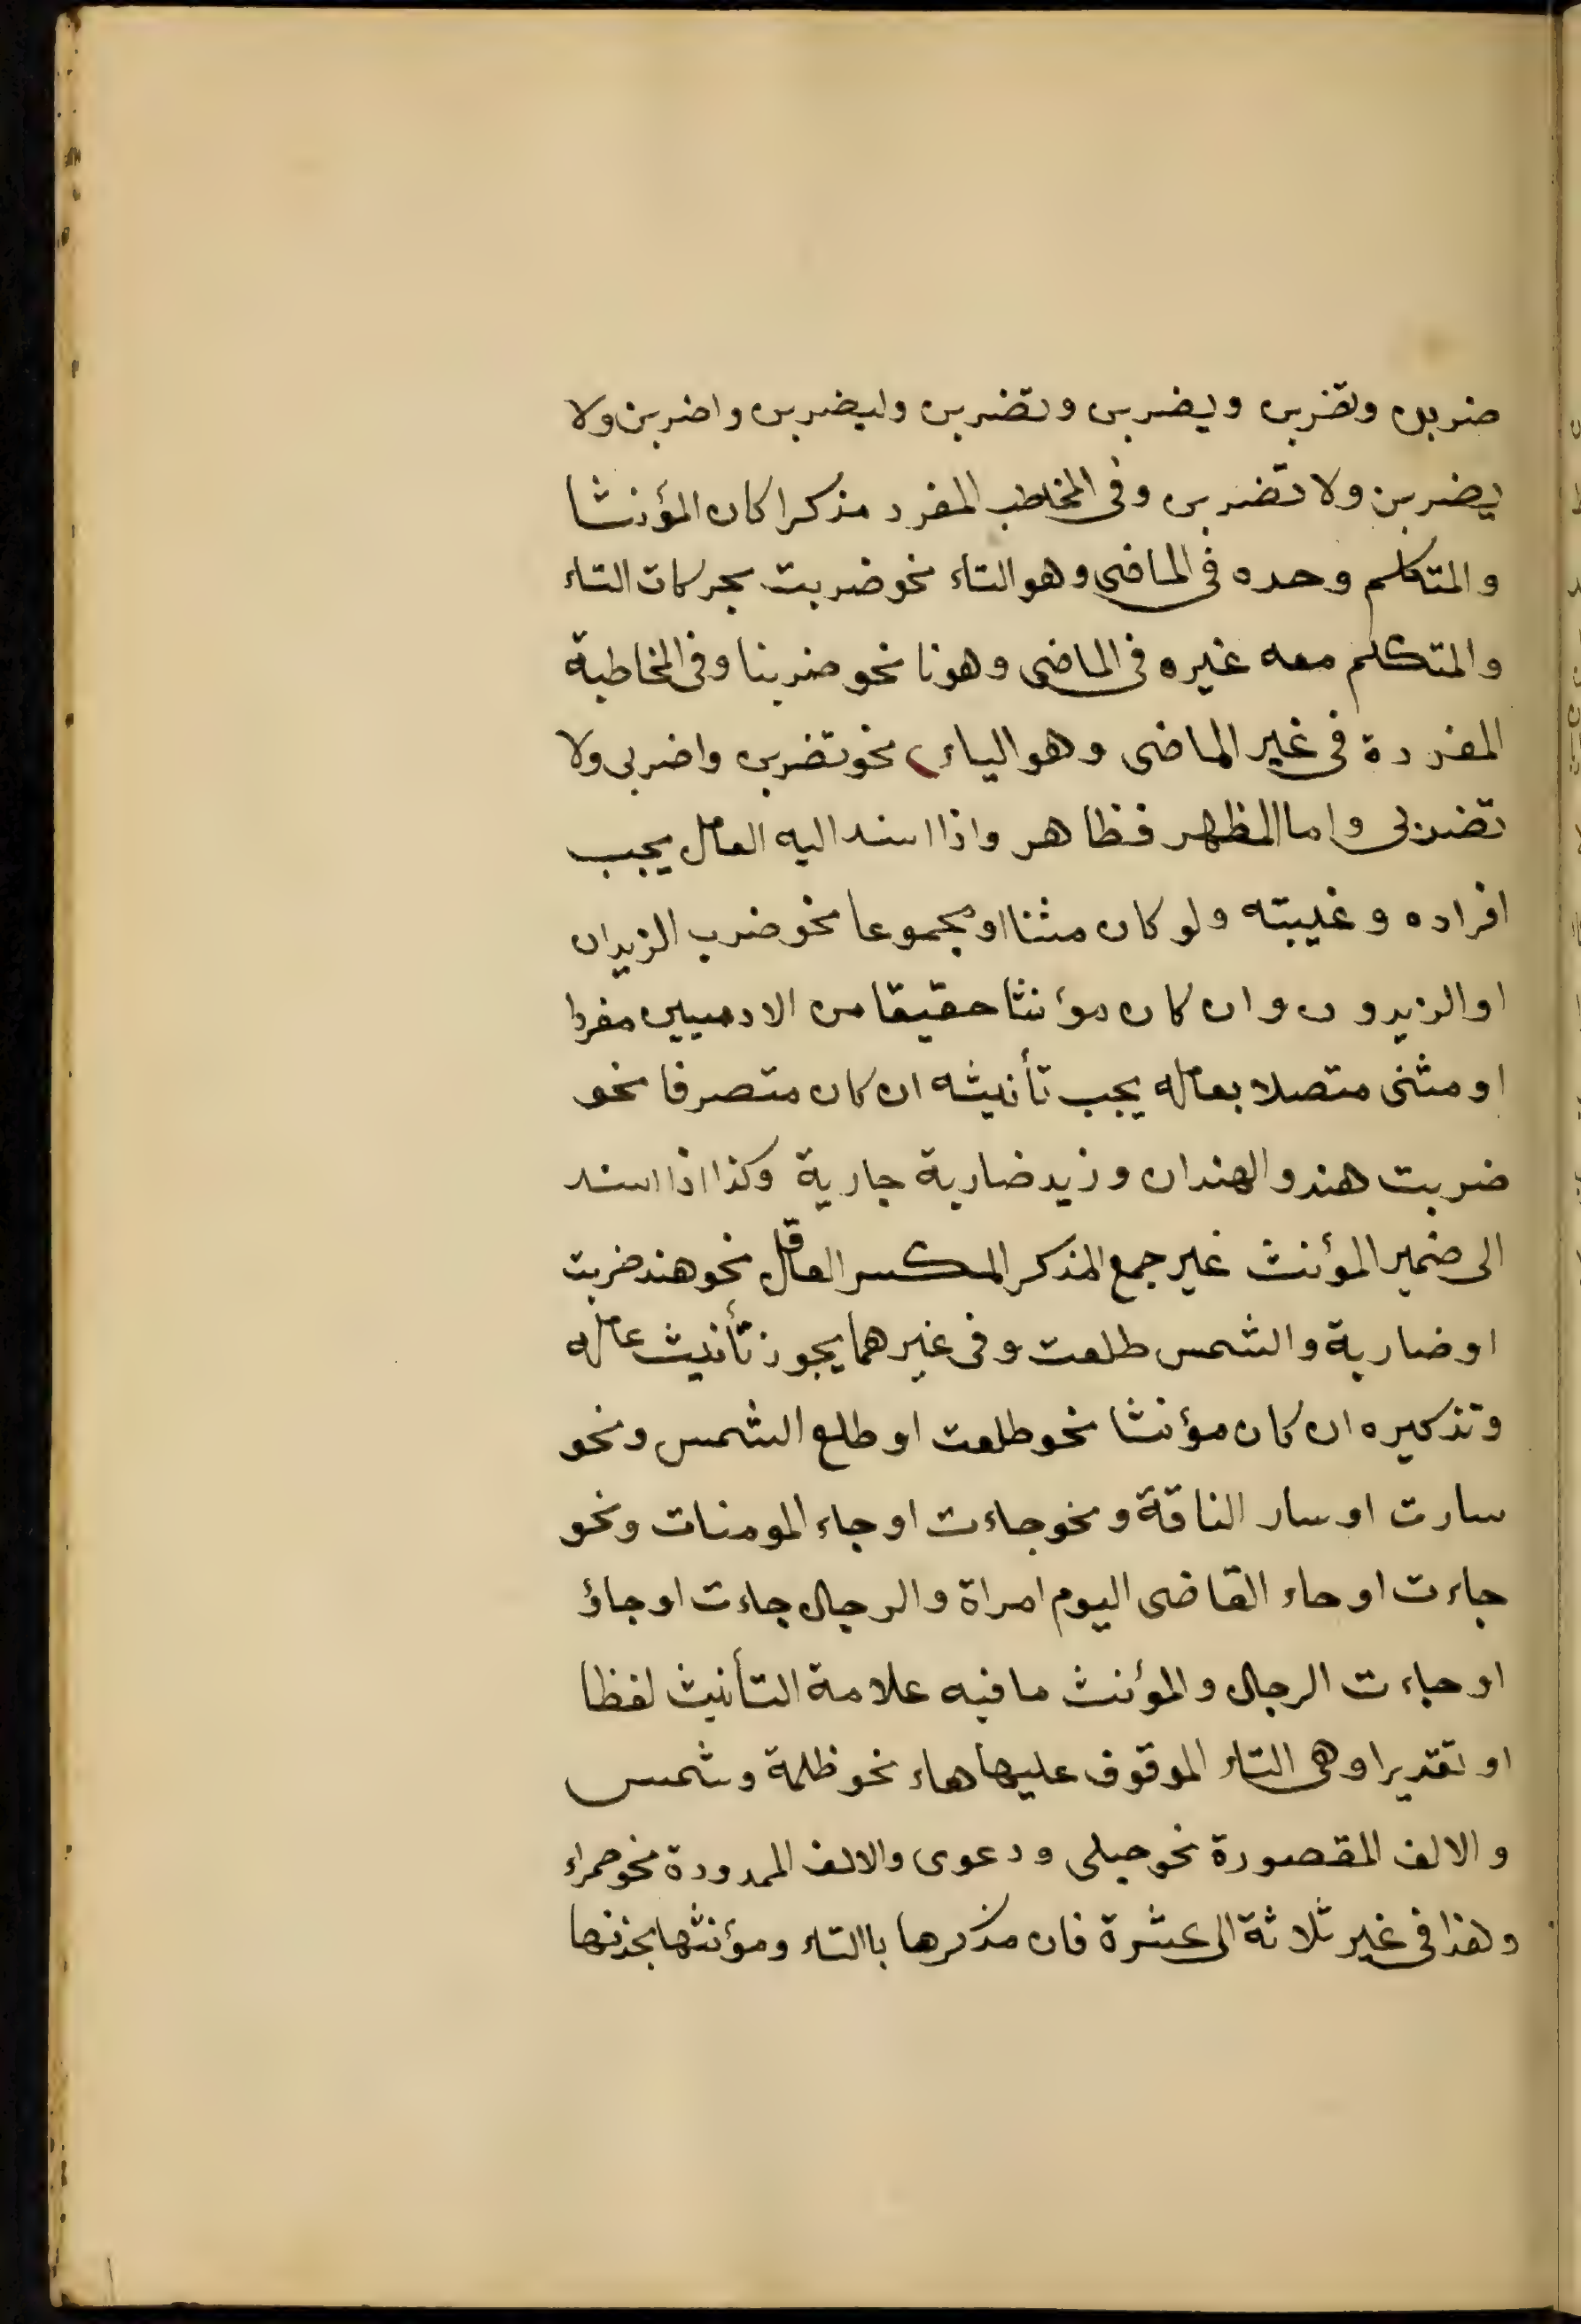 ضربن وتضربن ويضربن وتضربن وليضربن واضربن ولا
يضربن ولا تضربن وفى المخاطب المفرد مذكرا كان المؤنثا
والمتكلم وحده فى الماضى وهو التاء نحو ضربت بحركات التاء
والمتكلم معه غيره فى الماضى وهو نا نحو ضربنا وفى المخاطبة
المفردة فى غير الماضى وهو الياء نحو تضربين واضربى ولا
تضربى واما المظهر فظاهر واذا اسند اليه العامل يجب
افراده وغيبته ولو كان مثنا او مجموعا نحو ضرب الزيدان
او الزيدون وان كان مؤنثا حقيقا من الادميين مفردا
او مثنى متصلا بعامله يجب تأنيثه ان كان متصرفا نحو
ضربت هند والهندان وزيد ضاربة جارية وكذا اذا اسند
الى ضمير المؤنث غير جمع المذكر المكسر العاقل نحو هند ضربت
او ضاربة والشمس طلعت وفى غيرهما يجوز تأنيث عامله
وتذكيره ان كان مؤنثا نحو طلعت او طلع الشمس ونحو
سارت او سار الناقة ونحو جاءت او جاء المومنات ونحو
جاءت او جاء القاضى اليوم امراة والرجال جاءت او جاؤ
او جاءت الرجال والمؤنث ما فيه علامة التأنيث لفظا
او تقديرا وهى التاء الموقوف عليها هاء نحو ظلمة وشمس
والالف المقصورة نحو حبلى ودعوى والالف الممدودة نحو حمراء
وهذا فى غير ثلاثة الى عشرة فان مذكرها باالتاء ومؤنثها بحذفها